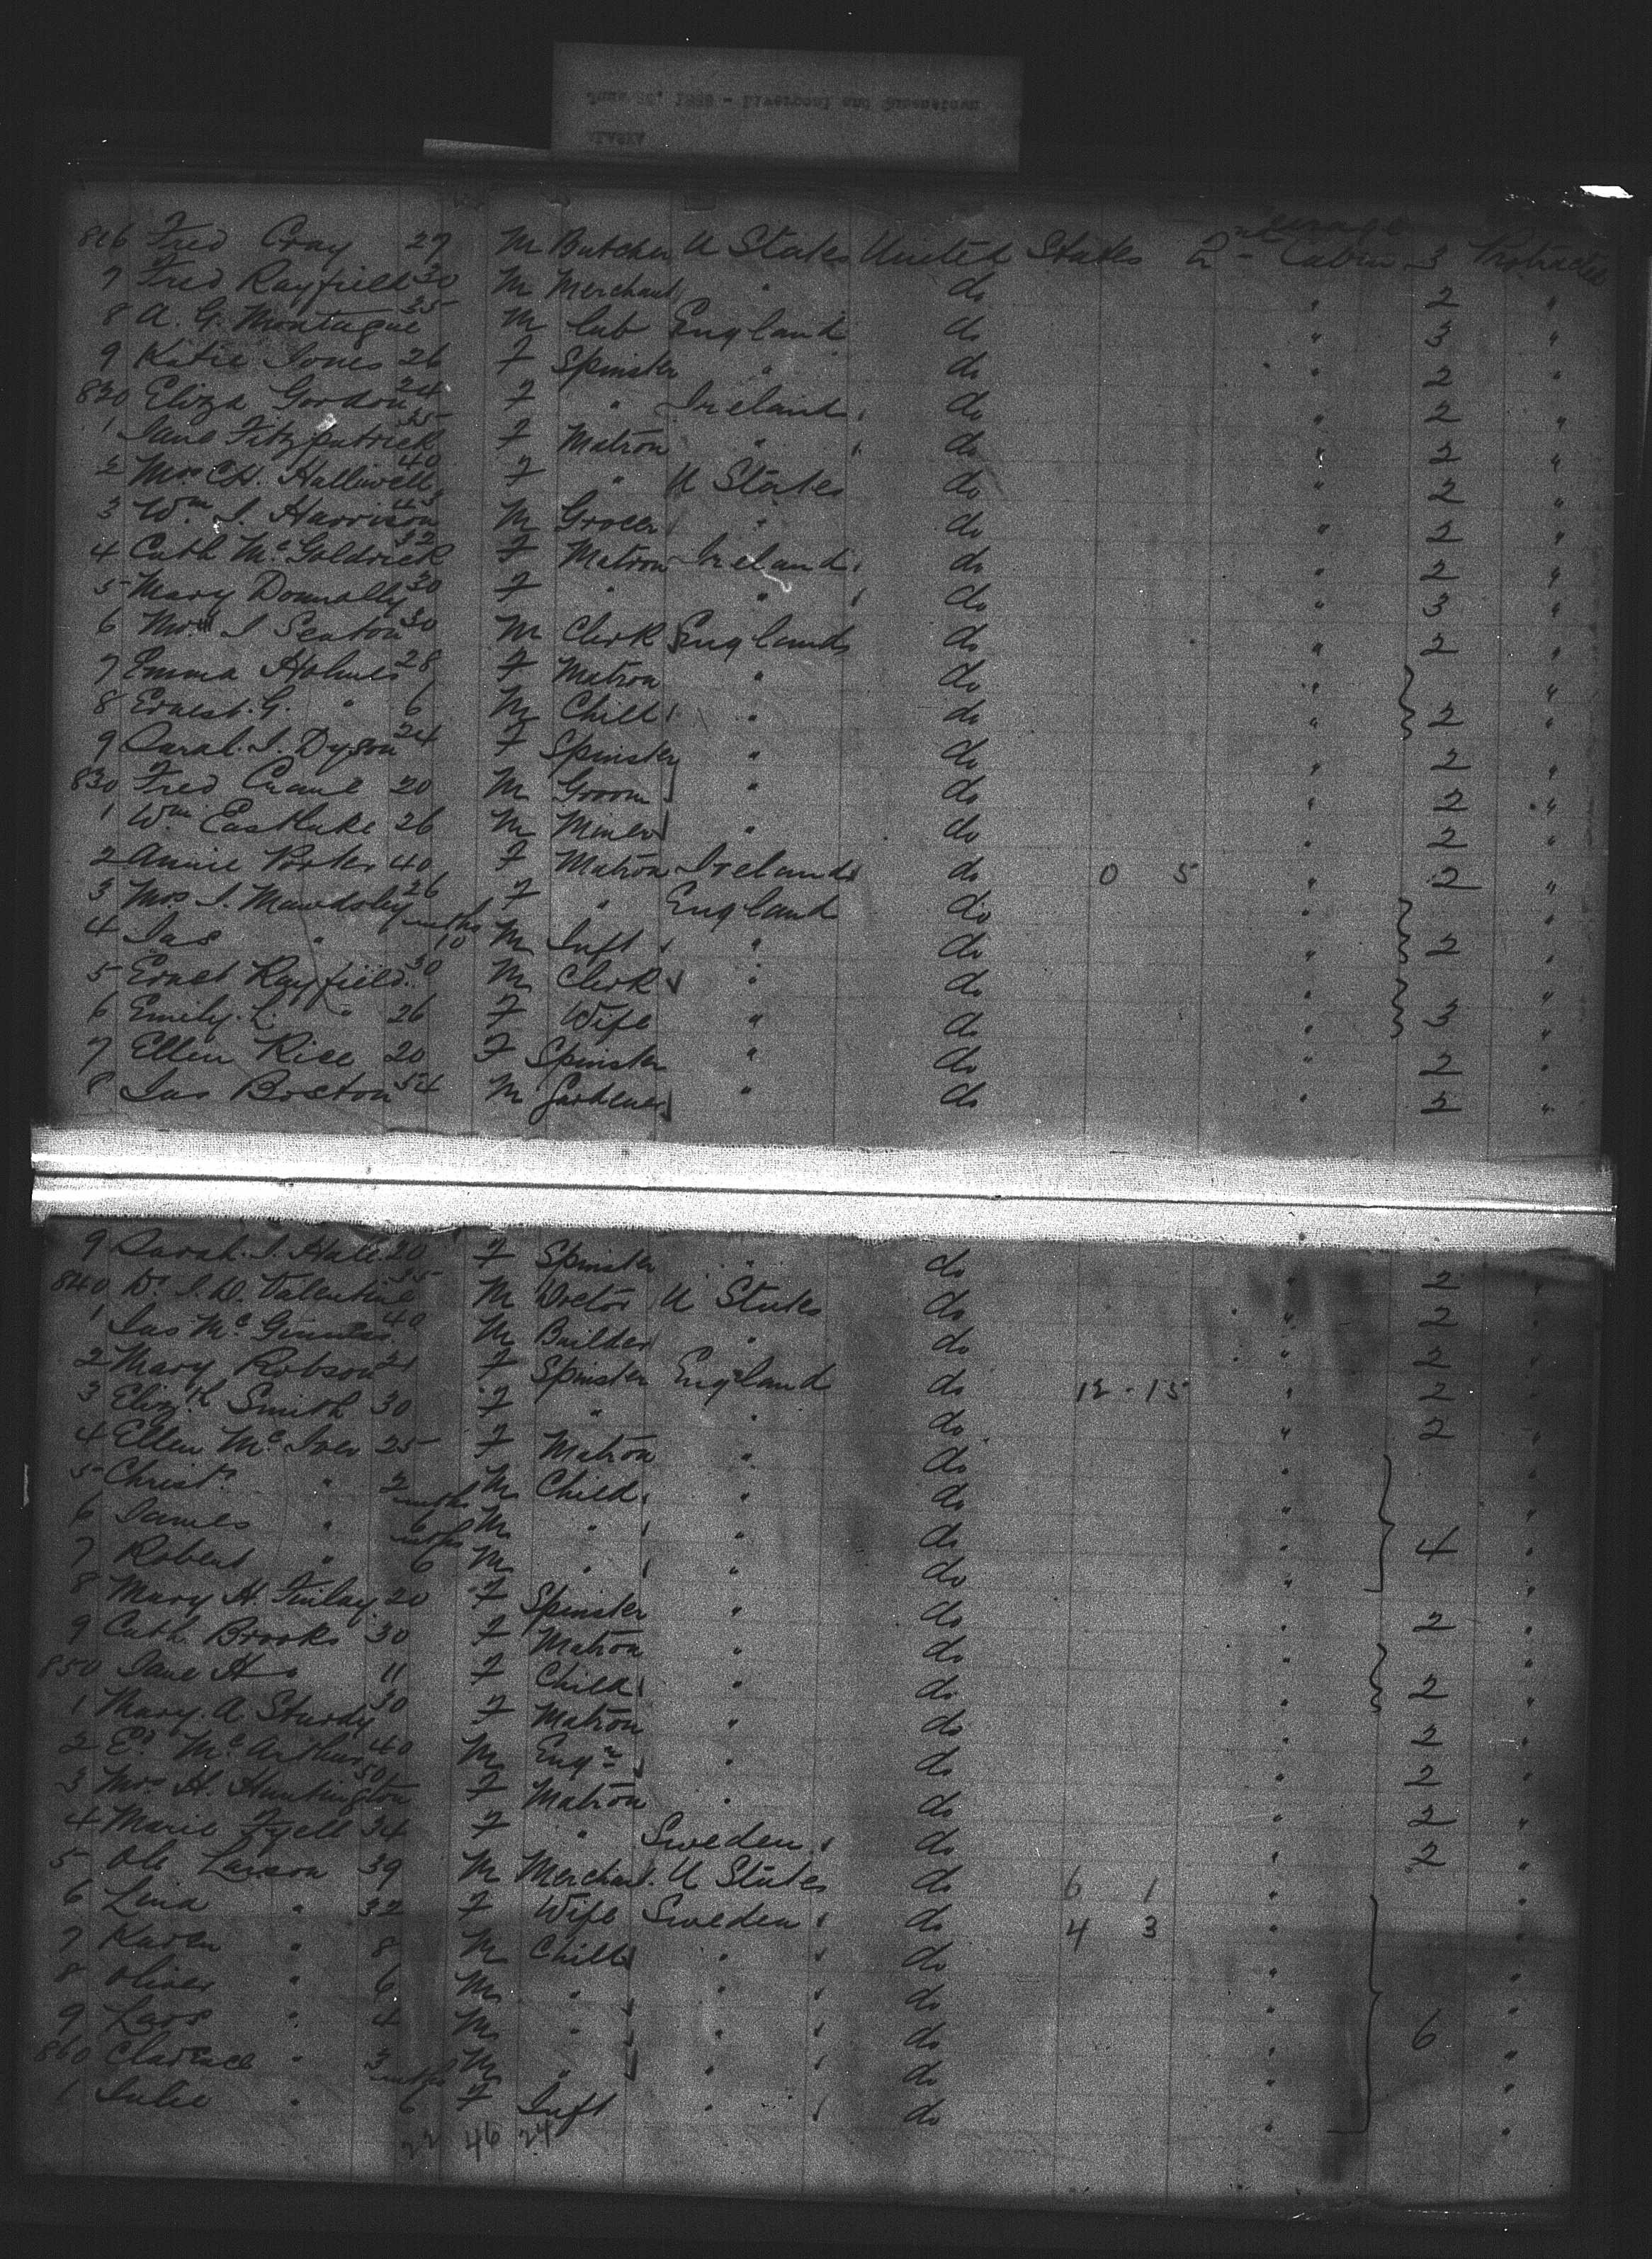 816 Fred Cray 27 M Butcher U States United States 2nd Cabin 3 Protracted
7 Fred Rayfield 30 M Merchant " do " 2 "
8 A. G. Montague 35 M Cab England do " 3 "
9 Katie Jones 26 F Spinster " do " 2 "
820 Eliza Gordon 24 F " Ireland do " 2 "
1 Jane Fitzpatrick 35 F Matron " do " 2 "
2 Mrs C.H. Halliwell 40 F " U States do " 2 "
3 Wm J. Harrison 45 M Grocer " do " 2 "
4 Cath McGoldrick 32 F Matron Ireland do " 2 "
5 Mary Donnolly 30 F " " do " 3 "
6 J Seaton 30 M Clerk England do " 2 "
7 Emma Holmes 28 F Matron " do " "
8 Ernest. G. " 6 M Child " do " 2 "
9 Sarah. J. Dyson 24 F Spinster " do " 2 "
830 Fred Crane 20 M Groom " do " 2 "
1 Wm Eastlake 26 M Miner " do " 2 "
2 Annie Porter 40 F Matron Ireland do 0 5 " 2 "
3 Mrs J. Mawdsley 26 F " England do " "
4 Jas " mths 10 M Inft " do " 2 "
5 Ernest Rayfield 30 M Clerk " do " "
6 Emily. L. " 26 F Wife " do " 3 "
7 Ellen Rice 20 F Spinster " do " 2 "
8 Jas Boston 54 M Gardener " do " 2 "
9 Sarah. J. Hall 20 F Spinster " do " 2 "
840 Dr. J. D. Valentine 35 M Doctor U States do " 2 "
1 Jas McGinniss 40 M Builder " do " 2 "
2 Mary Robson 21 F Spinster England do 12 - 15 " 2 "
3 Elizth Smith 30 F " " do " 2 "
4 Ellen McIver 25 F Matron " do " "
5 Christr " 2 M Child " do " "
6 James " mths 6 M " " do " 4 "
7 Robert " mths 6 M " " do " "
8 Mary H. Finlay 20 F Spinster " do " 2 "
9 Cath Brooks 30 F Matron " do " "
850 Jane H " 11 F Child " do " 2 "
1 Mary. A Sturdy 30 F Matron " do " 2 "
2 Ed. McArthur 40 M Engr " do " 2 "
3 Mrs H. Huntington 50 F Matron " do " 2 "
4 Marie Fyell 34 F " Sweden do " 2 "
5 Ole Larson 39 M Merchant. U States do 6 1 " "
6 Lina " 32 F Wife Sweden do 4 3 " "
7 Karen " 8 M Child " do " "
8 Oliver " 6 M " " do " "
9 Lars " 4 M " " do " 6 "
860 Clarence " 3 M " " do " "
1 Julie " mths 6 F Inft " do " "
22 46 24